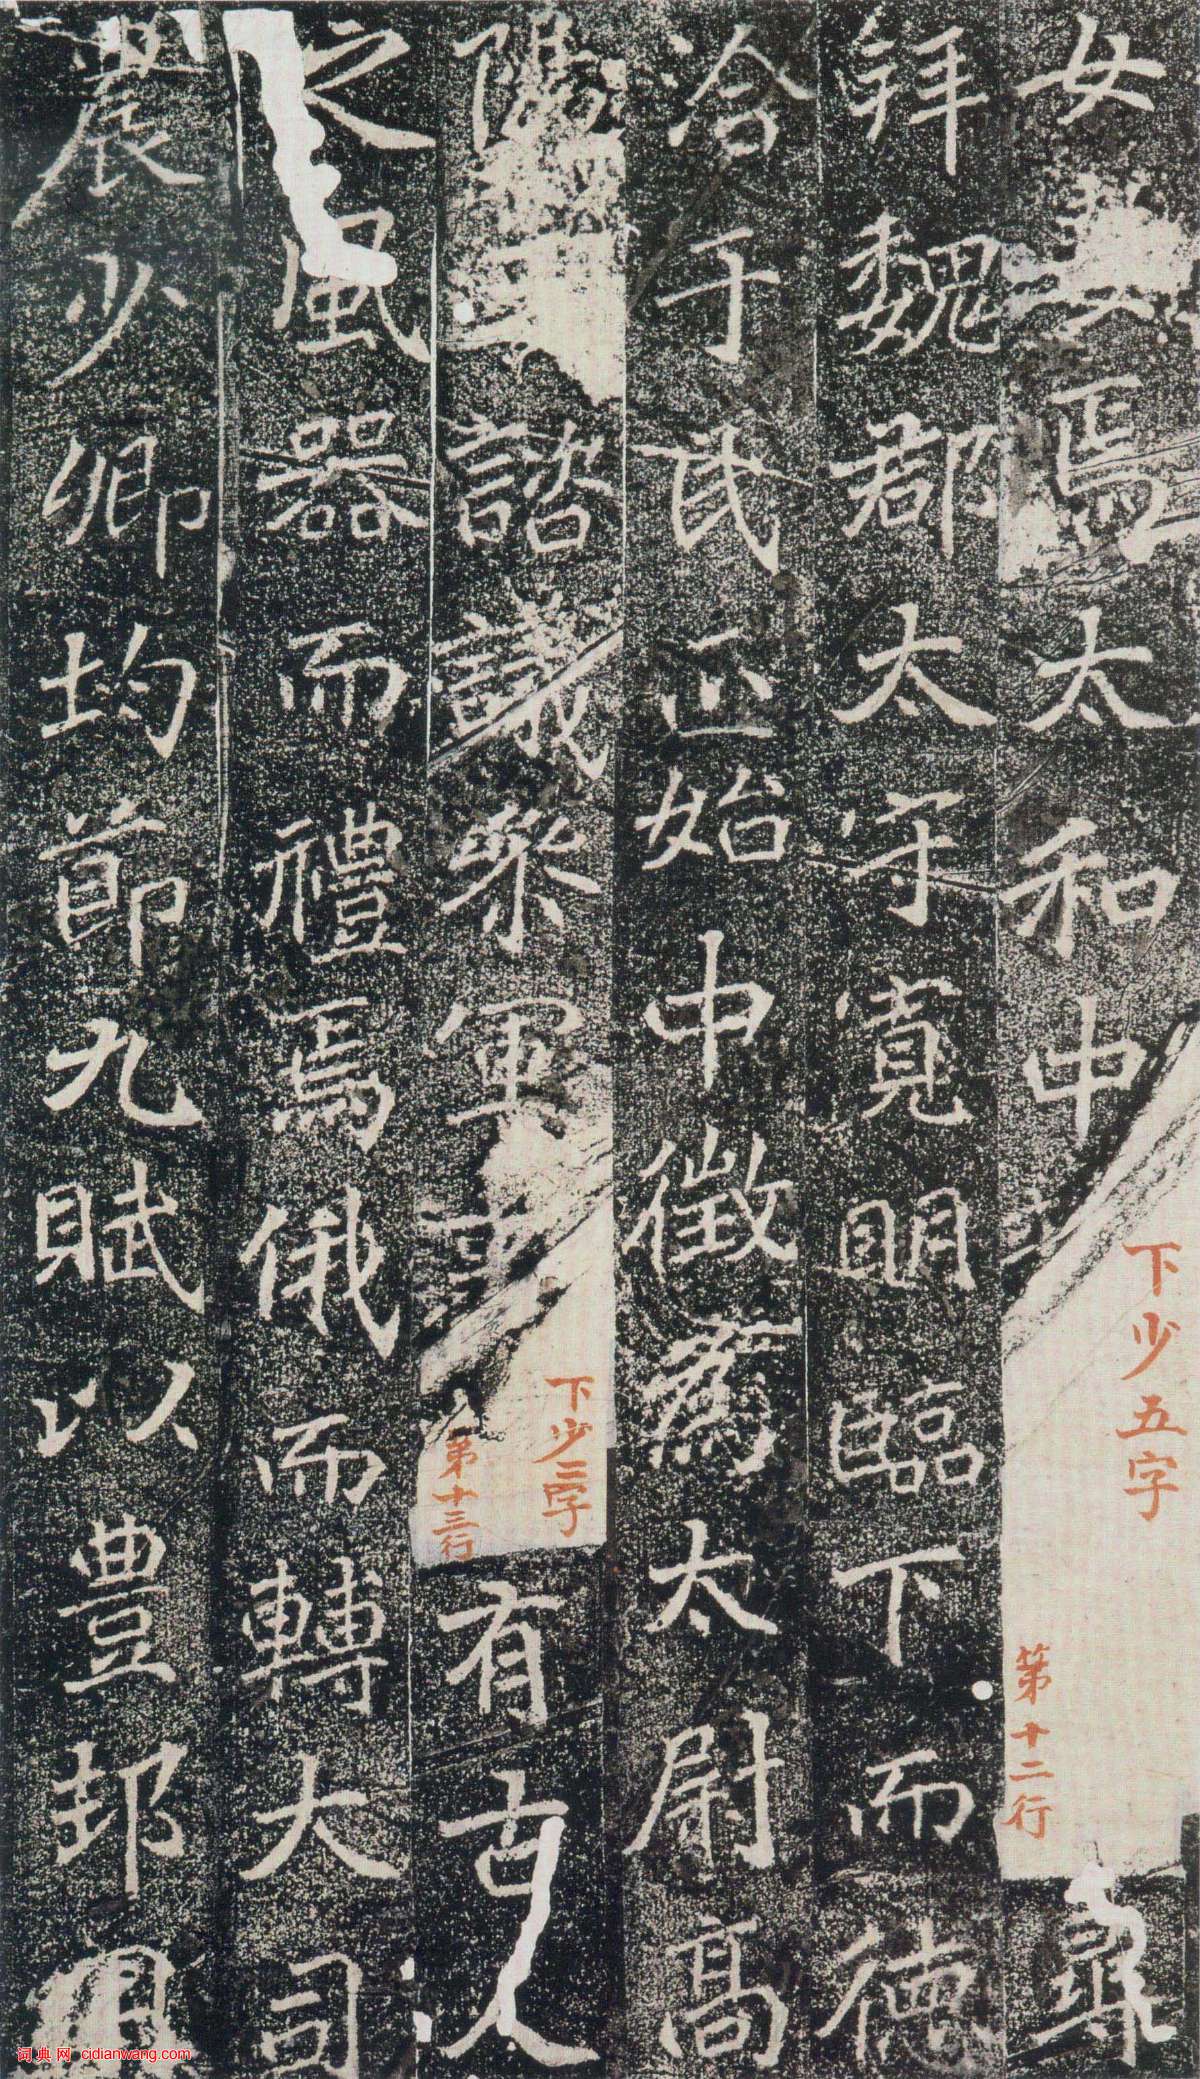 女妻焉太和中
下少五字
第十二行
尋
拜魏郡太守寬明臨下而德
洽于民正始中徵爲太尉高
陽王諮議參軍事
下少二字
第十三行
有古人
之風器而禮焉俄而轉大司
農少卿均節九賦以豊邦用
词典网 cidianwang.com